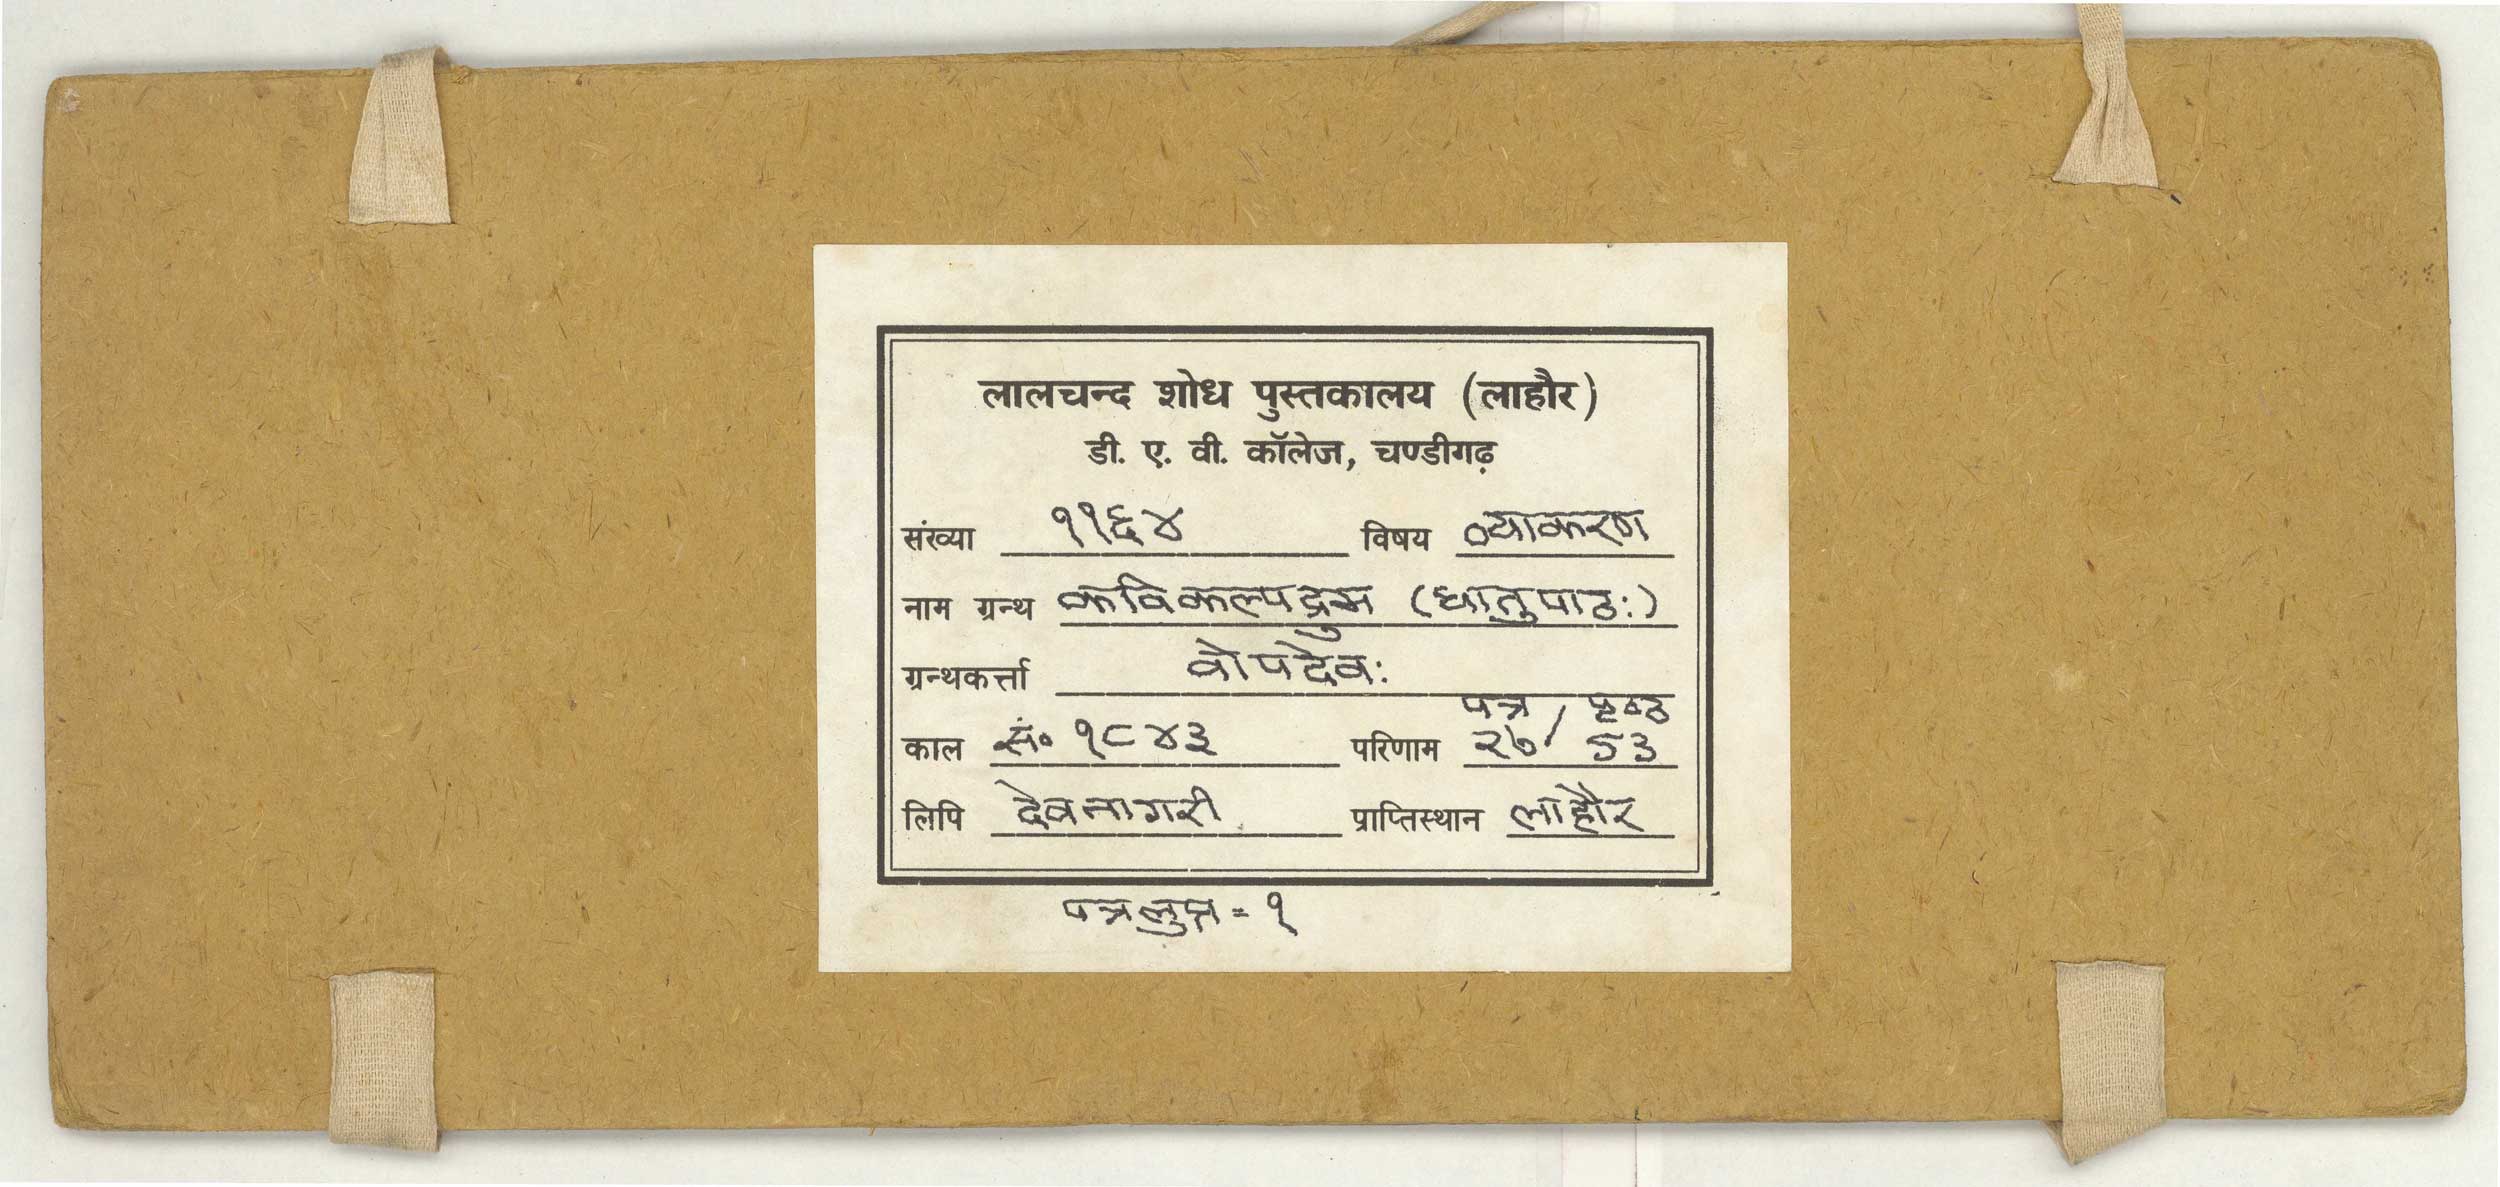 लालचन्द शोध पुस्तकालय (लाहौर)
डी. ए. वी. कॉलेज, चण्डीगढ़
संख्या ११६४ विषय व्याकरण
नाम ग्रन्थ कविकल्पद्रुम (धातुपाठः)
ग्रन्थकर्त्ता वोपदेवः
पत्र / पृष्ठ
काल सं० १८४३ परिणाम २७ / ५३
लिपि देवनागरी प्राप्तिस्थान लाहौर
पत्रलुप्त = १